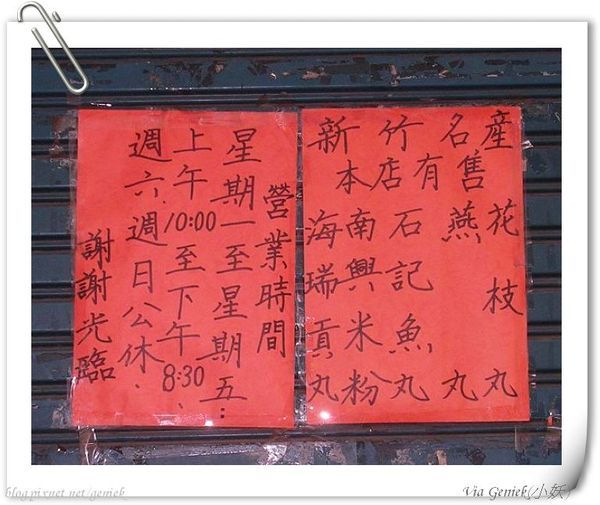 新竹名產
本店有售
海瑞貢丸
南興米粉
石記魚丸
燕丸
花枝丸
營業時間
星期一至星期五:
上午10:00至下午8:30、
週六週日公休.
謝謝光臨
blog.pixnet.net/geniek
Via Geniek(小妖)